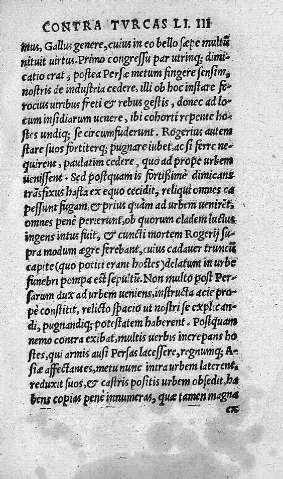 CONTRA TVRCAS LI. III
mus, Gallus genere, cuius in eo bello sæpe multũ
nituit virtus. Primo congressu par utrinq; dimi-
catio erat, postea Persæ metum fingere sensim,
nostris de industria cedere. illi ob hoc instare fe-
rocius viribus freti & rebus gestis, donec ad lo-
cum insidiarum uenere, ibi cohorti repente ho-
stes undiq; se circumfuderunt. Rogerius autem
stare suos fortiterq; pugnare iubet: ac si ferre ne-
quirent, paulatim cedere, quo ad prope urbem
uenissent. Sed postquam is fortissimè dimicans
trãsfixus hasta ex equo cecidit, reliqui omnes ca
pessunt fugam & prius quàm ad urbem uenirẽt,
omnes penè perierunt, ob quorum cladem luctus
ingens intus fuit, & cuncti mortem Rogerij su-
pra modum ægre ferebant, cuius cadauer truncũ
capite (quo potiti erant hostes) delatum in urbe
funebri pompa est sepultũ. Non multo post Per-
sarum dux ad urbem ueniens, instructa acie pro-
pè constitit, relicto spacio ut nostri se explican-
di, pugnandiq; potestatem haberent. Postquam
nemo contra exibat, multis verbis increpans ho
stes, qui armis ausi Persas lacessere, regnumq; A-
siæ affectantes, metu nunc intra urbem laterent,
reduxit suos, & castris positis urbem obsedit, ha
bens copias penè innumeras, quæ tamen magna
ex